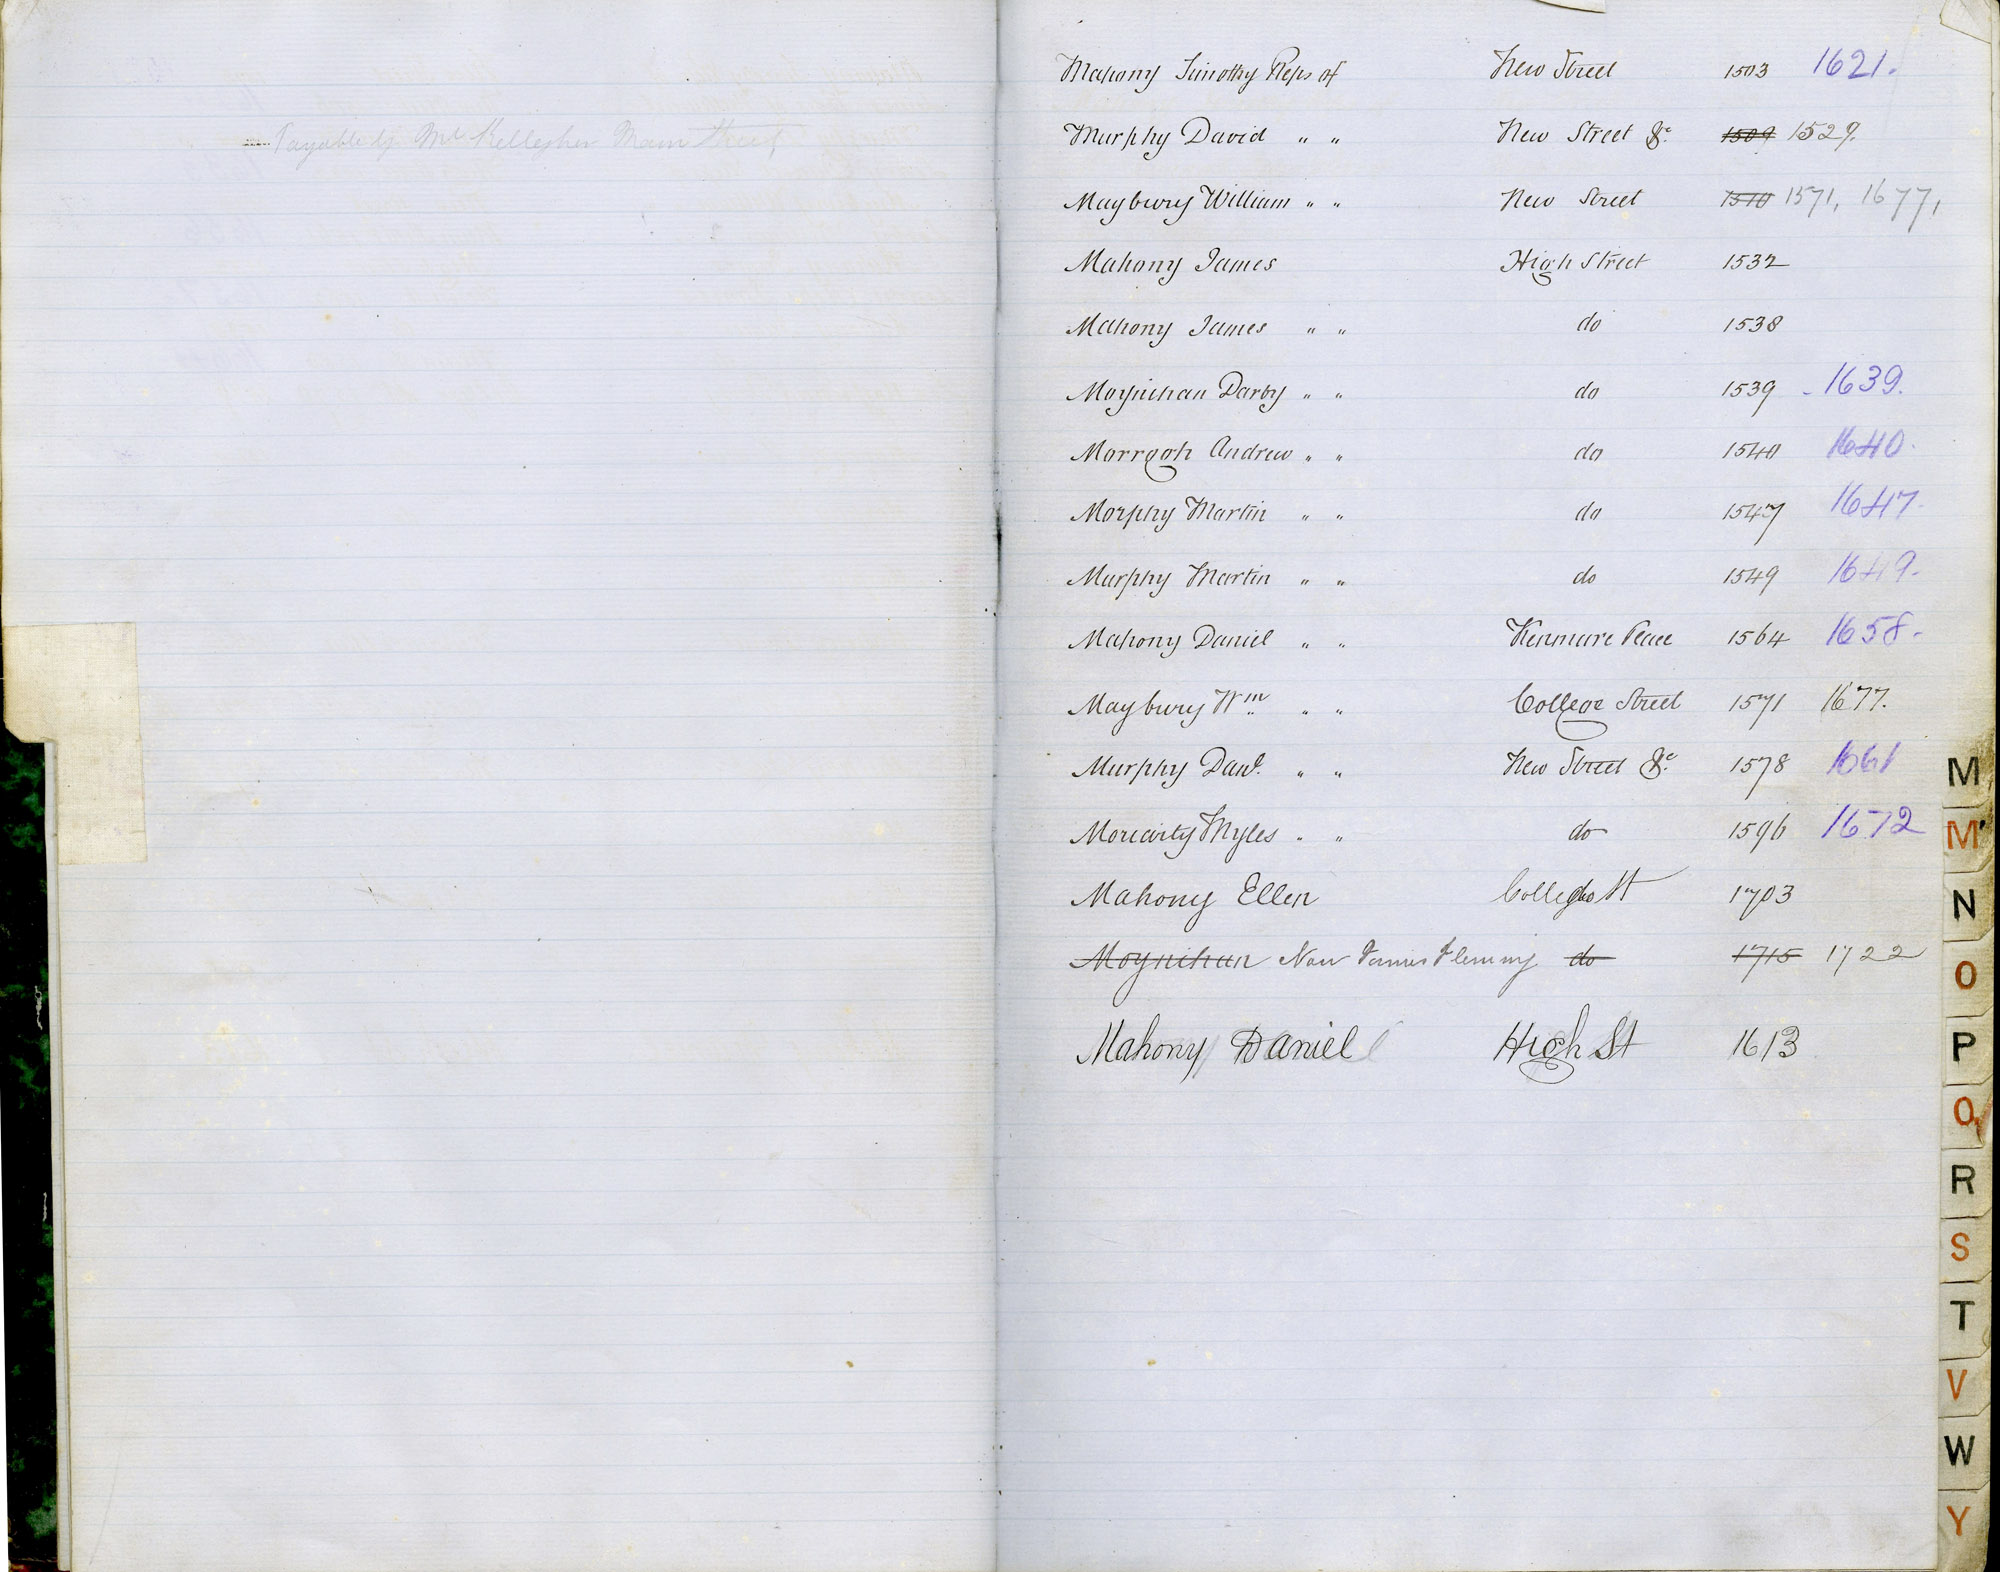 Payable by Mr Kellegher Main Street
Mahony Timothy Reps of New Street 1503 1621.
Murphy David " " New Street &c 1509 1529.
Maybury William " " New Street 1510 1571, 1677,
Mahony James High Street 1532
Mahony James " " do 1538
Moynihan Darby " " do 1539 - 1639.
Morrogh Andrew " " do 1540 1640.
Morphy Martin " " do 1547 1647.
Murphy Martin " " do 1549 1649.
Mahony Daniel " " Kenmare Place 1564 1658.
Maybury Wm " " College Street 1571 1677.
Murphy Danl. " " New Street &c 1578 1661
Moriarty Myles " " do 1596 1672
Mahony Ellen College St 1703
Moynihan Now James Fleming do 1715 1722
Mahony Daniel High St 1613
M
M'
N
O
P
Q
R
S
T
V
W
Y